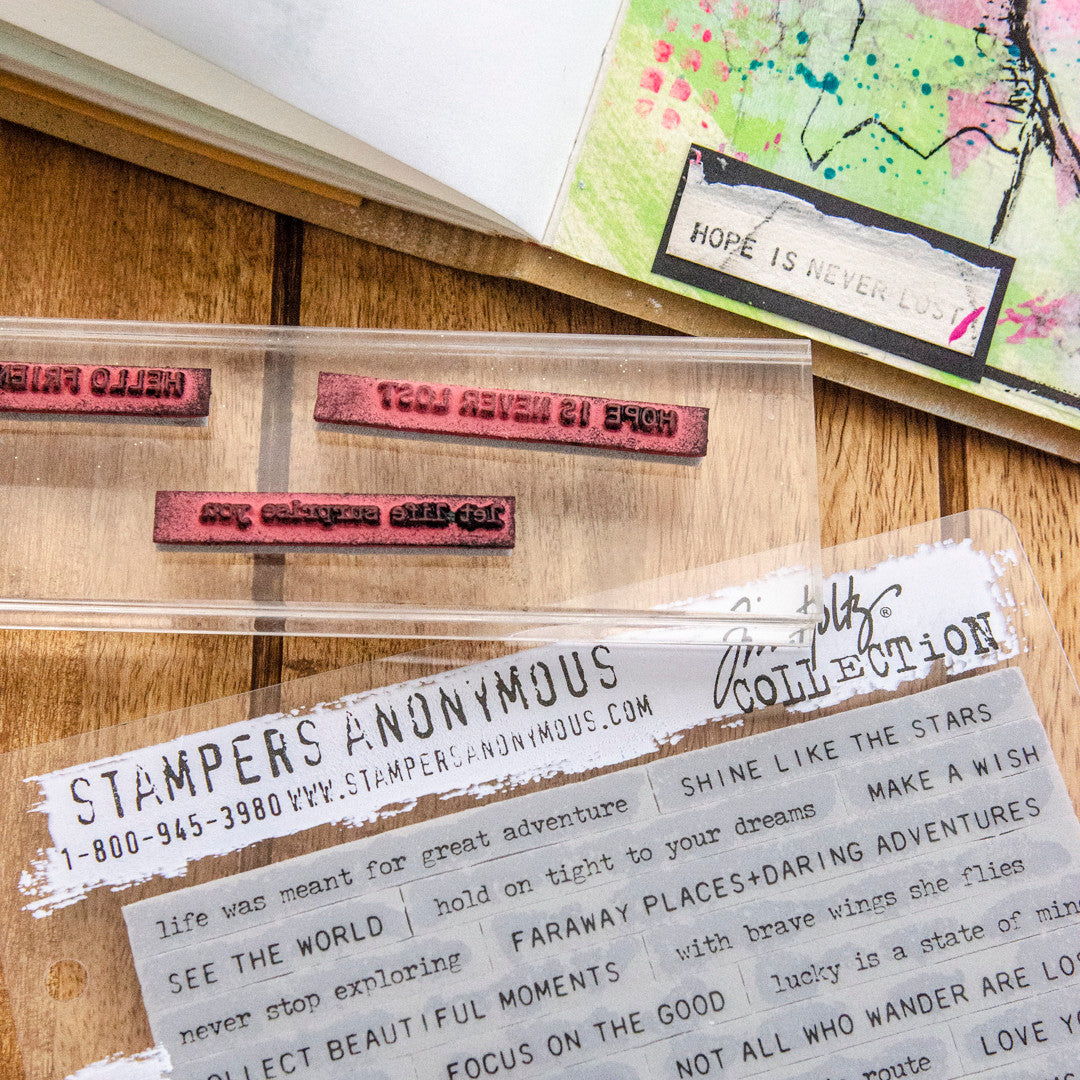 HOPE IS NEVER LOST
HELLO FRIEN
HOPE IS NEVER LOST
let life surprise you
Tim Holtz®
COLLECTION
STAMPERS ANONYMOUS
1-800-945-3980 WWW.STAMPERSANONYMOUS.COM
life was meant for great adventure SHINE LIKE THE STARS
SEE THE WORLD hold on tight to your dreams MAKE A WISH
never stop exploring FARAWAY PLACES+DARING ADVENTURES
OLLECT BEAUTIFUL MOMENTS with brave wings she flies
FOCUS ON THE GOOD lucky is a state of min
NOT ALL WHO WANDER ARE LOS
route LOVE YO